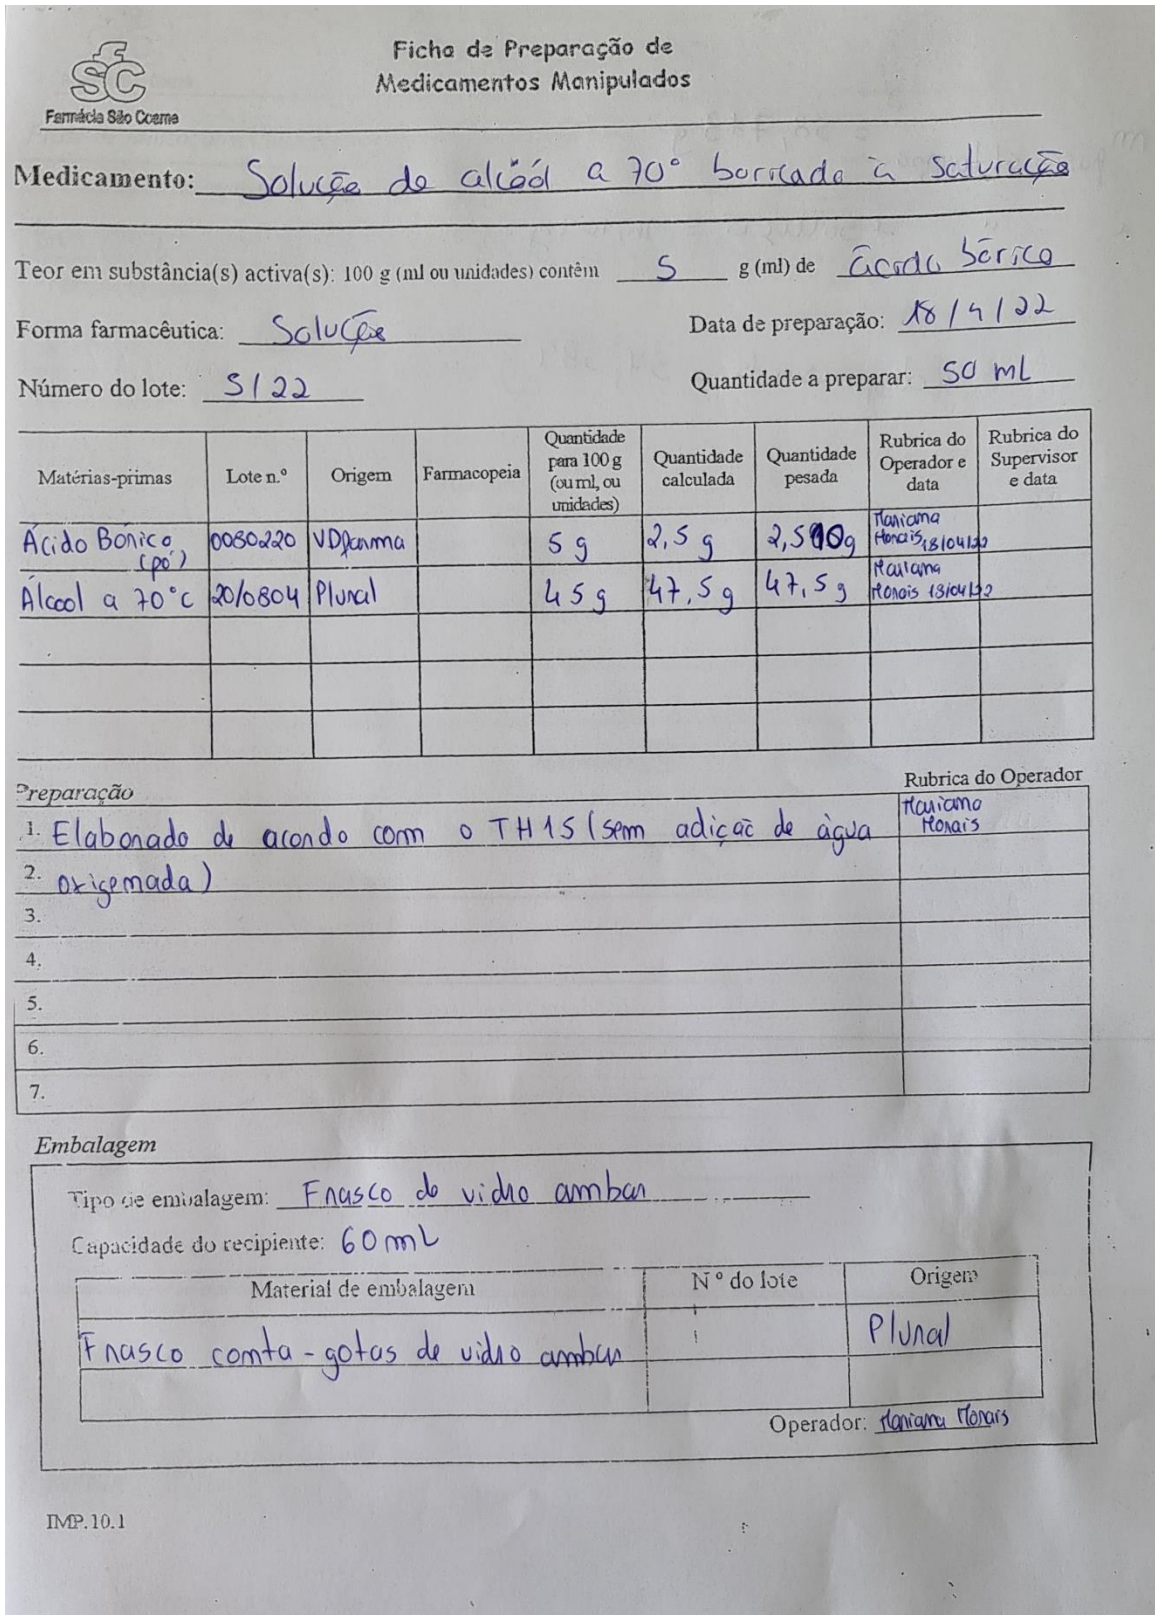 Ficha de Preparação de
Medicamentos Manipulados
fSC
Farmácia São Cosme
Medicamento: Solução de alcóól a 70° boricado à saturação
Teor em substância(s) activa(s): 100 g (ml ou unidades) contêm 5 g (ml) de ácido bórico
Forma farmacêutica: Solução Data de preparação: 18/4/22
Número do lote: 5/22 Quantidade a preparar: 50 ml
Matérias-primas Lote n.º Origem Farmacopeia Quantidade para 100 g (ou ml, ou unidades) Quantidade calculada Quantidade pesada Rubrica do Operador e data Rubrica do Supervisor e data
Ácido Bórico (pó) 0080220 VDfarma 5 g 2,5 g 2,510g Mariana Morais 18/04/22
Álcool a 70°C 20/0804 Plural 45g 47,5 g 47,5 g Mariana Morais 18/04/22
Preparação Rubrica do Operador
1. Elaborado de acordo com o TH15 (sem adição de àgua Mariana Morais
2. oxigenada)
3.
4.
5.
6.
7.
Embalagem
Tipo de embalagem: Frasco de vidro ambar
Capacidade do recipiente: 60 mL
Material de embalagem N º do lote Origem
Frasco conta-gotas de vidro ambar Plural
Operador: Mariana Morais
IMP.10.1